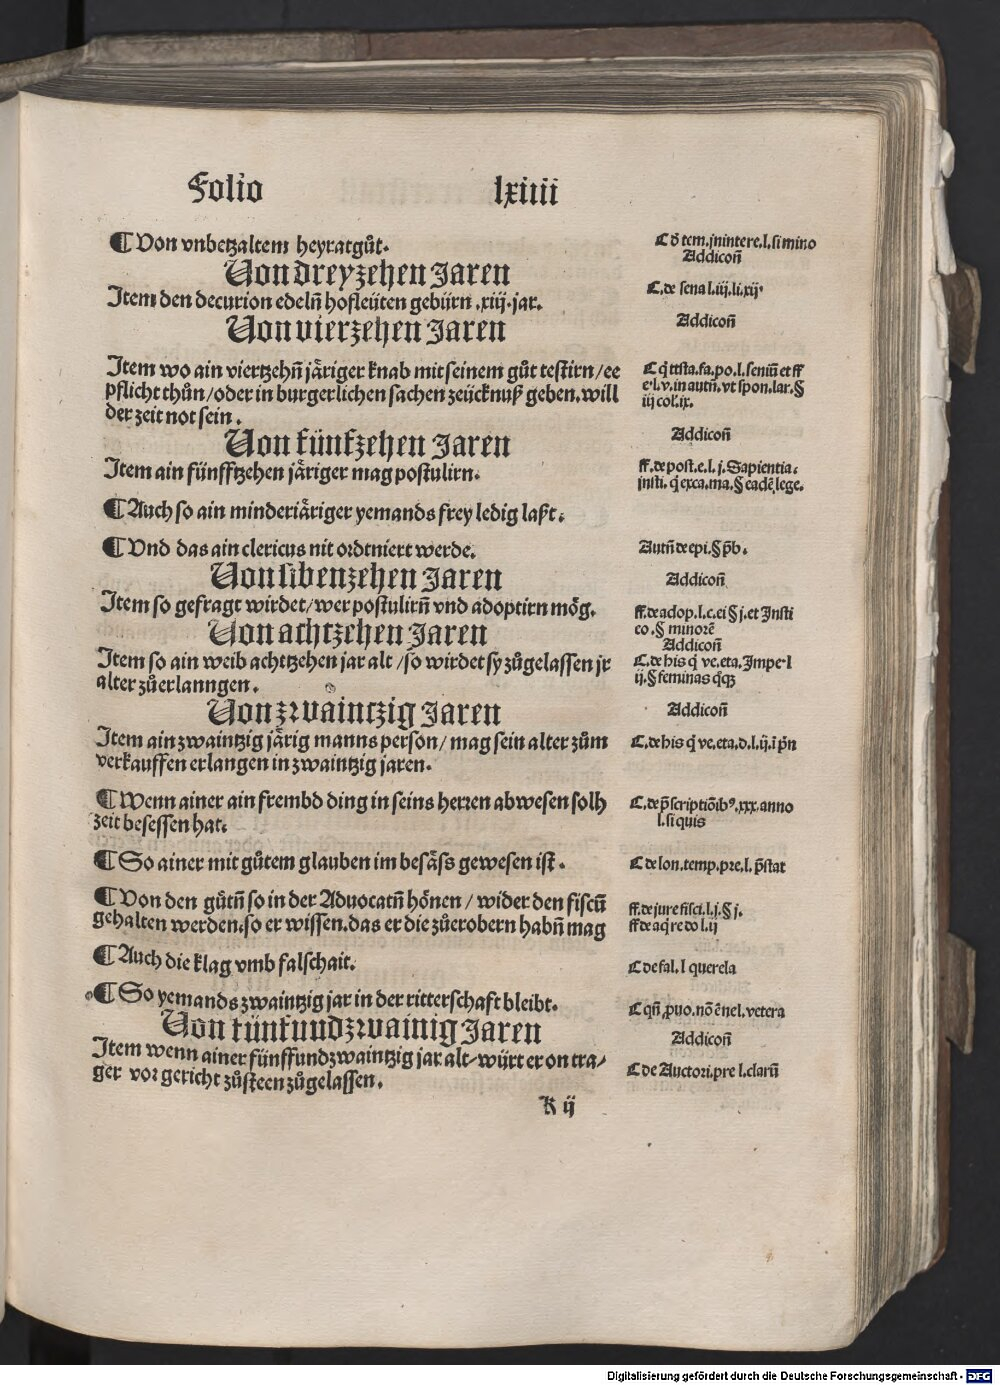 Folio lxiiii
¶ Von vnbetzaltem heyratgůt.
C. d tem. jnintere. l. si mino
Addicon̄
Von dreyzehen Jaren
Item den decurion edeln̄ hofleüten gebürn .xiij. jar.
C. de sena l. iij. li. xij.
Von vierzehen Jaren
Addicon̄
Item wo ain viertzehn̄ järiger knab mit seinem gůt testirn / ee
pflicht thůn / oder in burgerlichen sachen zeücknuß geben. will
der zeit not sein.
C q̇ ttsta. fa. po. l. seniū et ff
e. l. v. in autn̄. vt spon. lar. §
iij col. ix.
Von fünfzehen Jaren
Addicon̄
Item ain fünfftzehen järiger mag postulirn.
ff. de post. e. l. j. Sapientia.
insti. q̇ exca. ma. § eadē lege.
¶ Auch so ain minderjäriger yemands frey ledig laßt.
¶ Vnd das ain clericus nit ordiniert werde.
Autn̄ de epi. § p̄b.
Von sibenzehen Jaren
Addicon̄
Item so gefragt wirdet / wer postulirn̄ vnd adoptirn mög.
ff. de adop. l. c. ei § j. et Insti
eo. § minorē
Von achtzehen Jaren
Addicon̄
Item so ain weib achttzehen jar alt / so wirdet sy zůgelassen jr
alter zůerlanngen.
C. de his q̇ ve. eta. Impe. l
ij. § feminas q̄q̄
Von zwaintzig Jaren
Addicon̄
Item ain zwaintzig järig manns person / mag sein alter zům
verkauffen erlangen in zwaintzig jaren.
C. de his q̇ ve. eta. d. l. ij. i p̄n
¶ Wenn ainer ain frembd ding in seins herren abwesen solh
zeit besessen hat.
C. de p̄scriptiōib⁹. xxx. anno
l. si quis
¶ So ainer mit gůtem glauben im besäss gewesen ist.
C de lon. temp. pre. l. p̄stat
¶ Von den gütn̄ so in der Aduocatn̄ hönen / wider den fiscū
gehalten werden. so er wissen. das er die zůerobern habn̄ mag
ff. de jure fisci. l. j. § j.
ff de aq̇ re do l. ij
¶ Auch die klag vmb falschait.
C de fal. l querela
¶ So yemands zwaintzig jar in der ritterschaft bleibt.
C qn̄ puo. nō ē nel. vetera
Von fünfundzwainig Jaren
Addicon̄
Item wenn ainer fünffundzwaintzig jar alt / würt er on tra/
ger vor gericht zůsteen zůgelassen.
C de Auctori. pre l. clarū
K ij
Digitalisierung gefördert durch die Deutsche Forschungsgemeinschaft - DFG